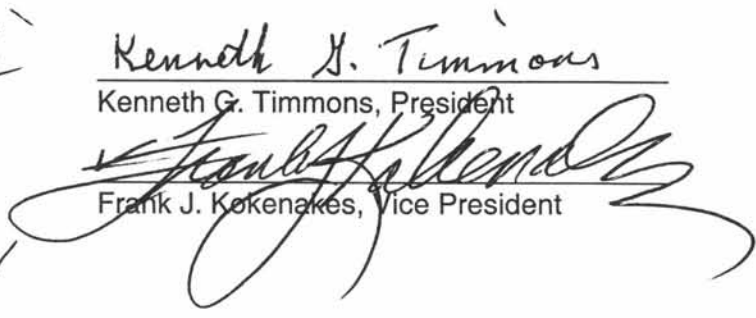 Kenneth G. Timmons
Kenneth G. Timmons, President
Frank J. Kokenakes
Frank J. Kokenakes, Vice President